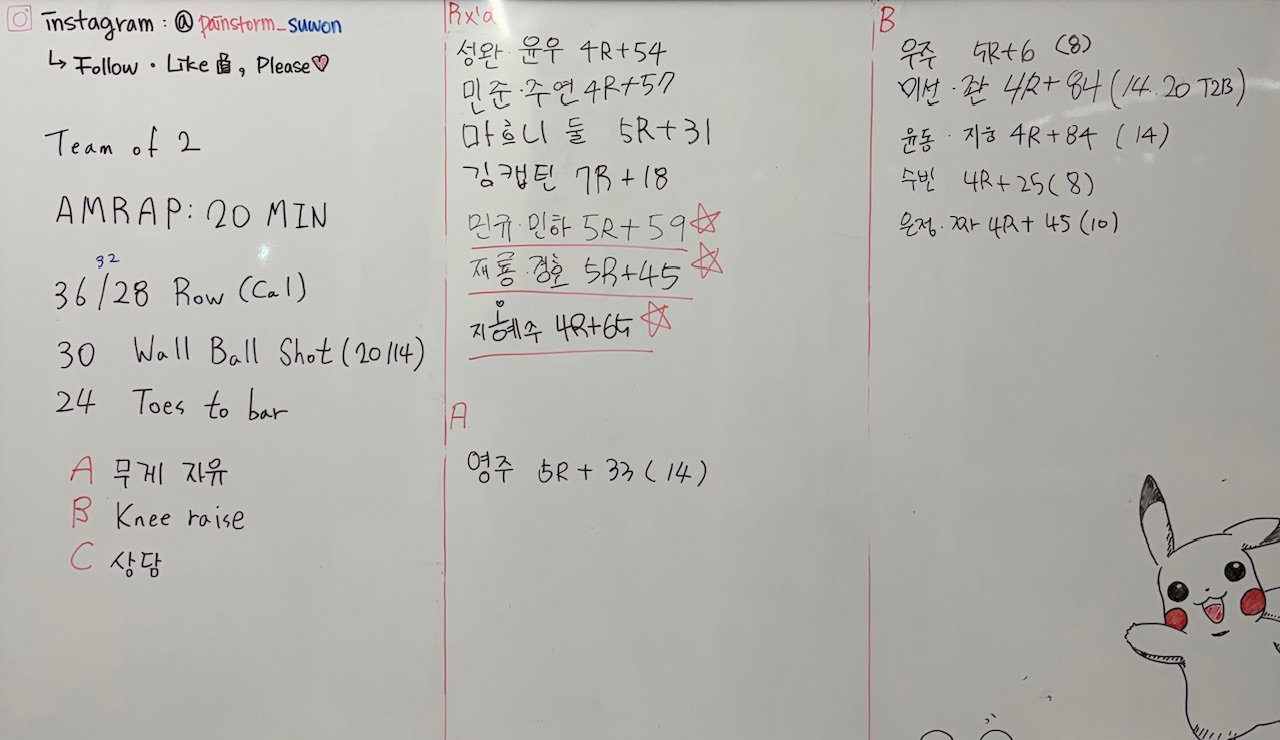 instagram : @painstorm_suwon
↳ Follow · Like, Please♡
Team of 2
AMRAP: 20 MIN
32
36/28 Row (Cal)
30 Wall Ball Shot (20/14)
24 Toes to bar
A 무게 자유
B Knee raise
C 상담
Rx'd
성완·윤우 4R+54
민준·주연 4R+57
마흐니 둘 5R+31
김캡틴 7R+18
민규·민하 5R+59 ☆
재룡·경호 5R+45 ☆
4R+65 ☆
A
영주 5R+33 (14)
B
우주 5R+6 (8)
미선·좐 4R+84 (14. 20 T2B)
윤동·지호 4R+84 (14)
수빈 4R+25 (8)
은정·짜 4R+45 (10)